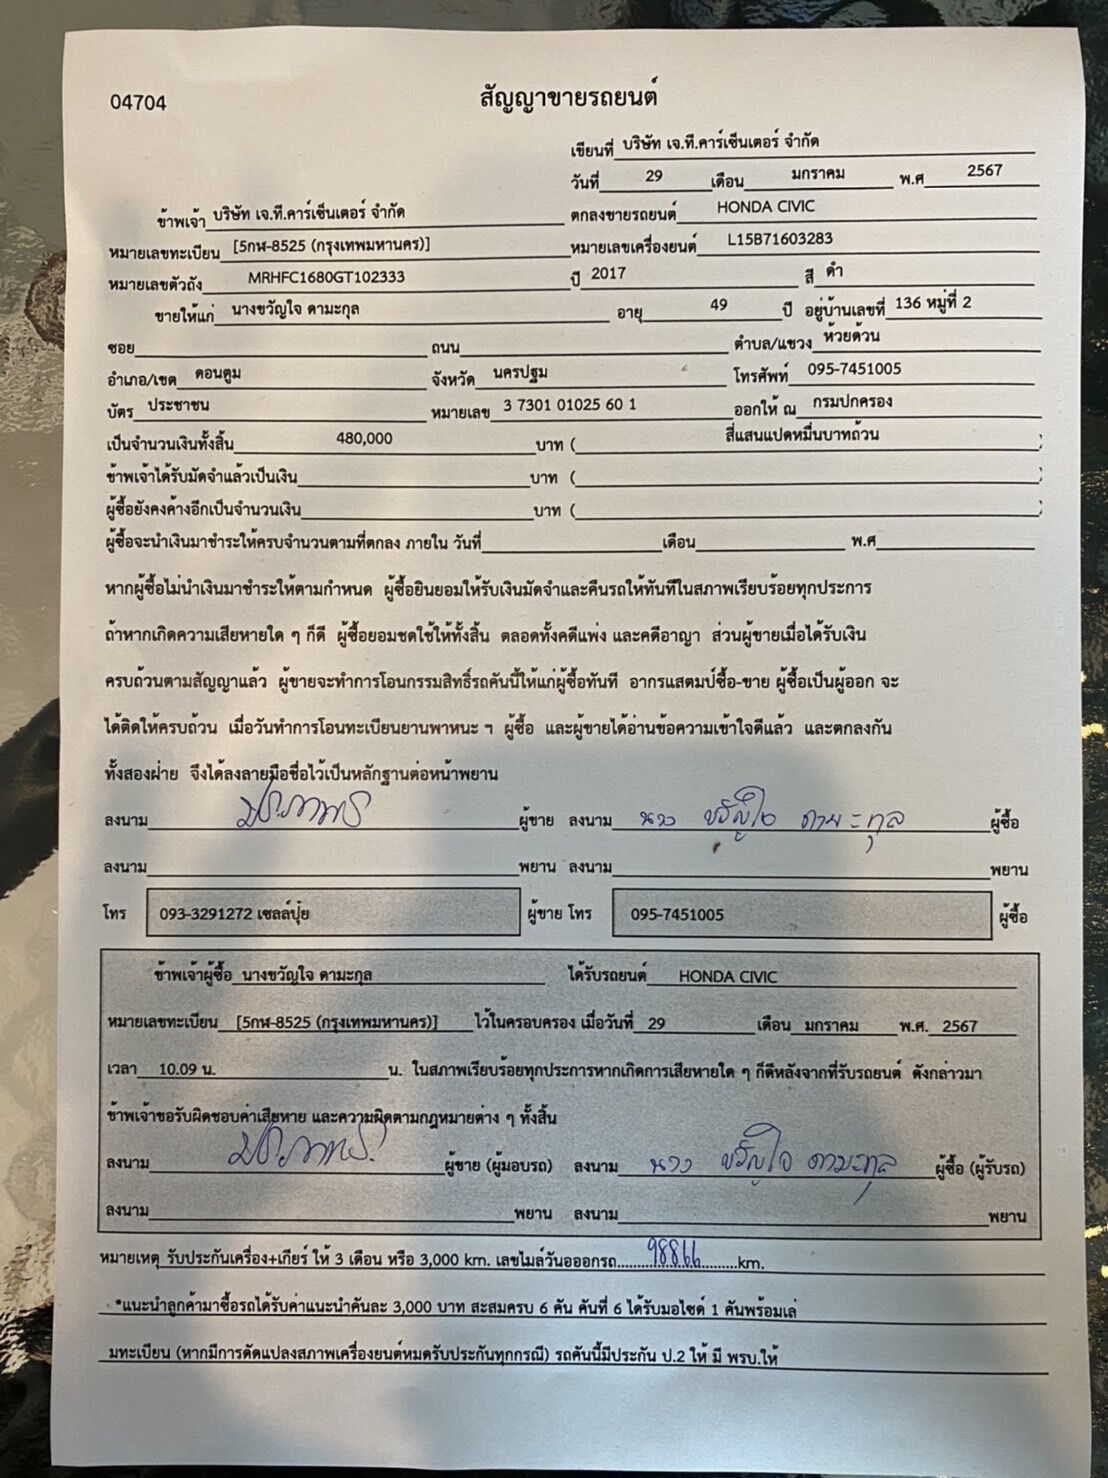 04704
สัญญาขายรถยนต์
เขียนที่ บริษัท เจ.ที.คาร์เซ็นเตอร์ จำกัด
วันที่ 29 เดือน มกราคม พ.ศ 2567
ข้าพเจ้า บริษัท เจ.ที.คาร์เซ็นเตอร์ จำกัด ตกลงขายรถยนต์ HONDA CIVIC
หมายเลขทะเบียน [5กฬ-8525 (กรุงเทพมหานคร)] หมายเลขเครื่องยนต์ L15B71603283
หมายเลขตัวถัง MRHFC1680GT102333 ปี 2017 สี ดำ
ขายให้แก่ นางขวัญใจ ดามะกุล อายุ 49 ปี อยู่บ้านเลขที่ 136 หมู่ที่ 2
ซอย ถนน ตำบล/แขวง ห้วยด้วน
อำเภอ/เขต ดอนตูม จังหวัด นครปฐม โทรศัพท์ 095-7451005
บัตร ประชาชน หมายเลข 3 7301 01025 60 1 ออกให้ ณ กรมปกครอง
เป็นจำนวนเงินทั้งสิ้น 480,000 บาท ( สี่แสนแปดหมื่นบาทถ้วน )
ข้าพเจ้าได้รับมัดจำแล้วเป็นเงิน บาท ( )
ผู้ซื้อยังคงค้างอีกเป็นจำนวนเงิน บาท ( )
ผู้ซื้อจะนำเงินมาชำระให้ครบจำนวนตามที่ตกลง ภายใน วันที่ เดือน พ.ศ
หากผู้ซื้อไม่นำเงินมาชำระให้ตามกำหนด ผู้ซื้อยินยอมให้รับเงินมัดจำและคืนรถให้ทันทีในสภาพเรียบร้อยทุกประการ
ถ้าหากเกิดความเสียหายใด ๆ ก็ดี ผู้ซื้อยอมชดใช้ให้ทั้งสิ้น ตลอดทั้งคดีแพ่ง และคดีอาญา ส่วนผู้ขายเมื่อได้รับเงิน
ครบถ้วนตามสัญญาแล้ว ผู้ขายจะทำการโอนกรรมสิทธิ์รถคันนี้ให้แก่ผู้ซื้อทันที อากรแสตมป์ซื้อ-ขาย ผู้ซื้อเป็นผู้ออก จะ
ได้ติดให้ครบถ้วน เมื่อวันทำการโอนทะเบียนยานพาหนะ ฯ ผู้ซื้อ และผู้ขายได้อ่านข้อความเข้าใจดีแล้ว และตกลงกัน
ทั้งสองฝ่าย จึงได้ลงลายมือชื่อไว้เป็นหลักฐานต่อหน้าพยาน
ลงนาม ผู้ขาย ลงนาม นาง ขวัญใจ ดามะกุล ผู้ซื้อ
ลงนาม พยาน ลงนาม พยาน
โทร 093-3291272 เซลล์ปุ้ย ผู้ขาย โทร 095-7451005 ผู้ซื้อ
ข้าพเจ้าผู้ซื้อ นางขวัญใจ ดามะกุล ได้รับรถยนต์ HONDA CIVIC
หมายเลขทะเบียน [5กฬ-8525 (กรุงเทพมหานคร)] ไว้ในครอบครอง เมื่อวันที่ 29 เดือน มกราคม พ.ศ. 2567
เวลา 10.09 น. น. ในสภาพเรียบร้อยทุกประการหากเกิดการเสียหายใด ๆ ก็ดีหลังจากที่รับรถยนต์ ดังกล่าวมา
ข้าพเจ้าขอรับผิดชอบค่าเสียหาย และความผิดตามกฎหมายต่าง ๆ ทั้งสิ้น
ลงนาม ผู้ขาย (ผู้มอบรถ) ลงนาม นาง ขวัญใจ ดามะกุล ผู้ซื้อ (ผู้รับรถ)
ลงนาม พยาน ลงนาม พยาน
หมายเหตุ รับประกันเครื่อง+เกียร์ ให้ 3 เดือน หรือ 3,000 km. เลขไมล์วันอออกรถ.......98866.........km.
*แนะนำลูกค้ามาซื้อรถได้รับค่าแนะนำคันละ 3,000 บาท สะสมครบ 6 คัน คันที่ 6 ได้รับมอไซด์ 1 คันพร้อมเล่
มทะเบียน (หากมีการดัดแปลงสภาพเครื่องยนต์หมดรับประกันทุกกรณี) รถคันนี้มีประกัน ป.2 ให้ มี พรบ.ให้